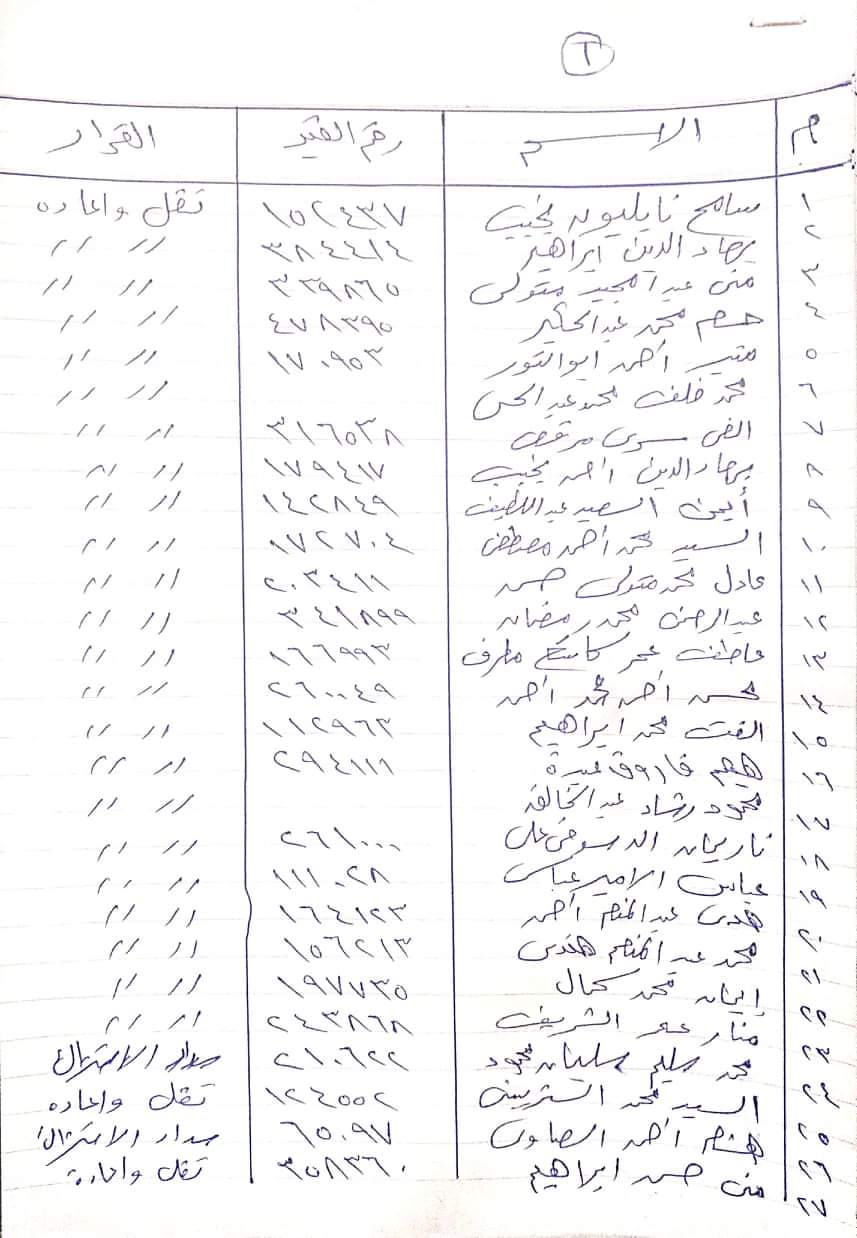 ٢
م الاسم رقم القيد القرار
١ سامح نابليون نجيب ١٥٢٤٣٧ نقل واعاده
٢ بهاء الدين ابراهيم ٣٨٤٤١٤ // //
٣ منى عبد المجيد متولى ٣٣٩٨٦٥ // //
٤ محمد عبد الحكيم ٤٧٨٣٩٥ // //
٥ منير أحمد ابو النور ١٧٠٩٥٣ // //
٦ محمد خلف محمد عبد // //
٧ الفى مرقص ٣١٦٥٣٨ // //
٨ بهاء الدين احمد نجيب ١٧٩٤١٧ // //
٩ أيمن السعيد عبد اللطيف ١٤٢٨٤٩ // //
١٠ السيد محمد أحمد مصطفى ٠٧٢٧٠٤ // //
١١ عادل محمد متولى حسن ٢٠٣٤١١ // //
١٢ عبد الرحمن محمد رمضان ٣٤١٨٩٩ // //
١٣ عاطف عمر مطرف ١٦٦٩٩٣ // //
١٤ أحمد محمد أحمد ٢٦٠٠٤٩ // //
١٥ الفت محمد ابراهيم ١١٢٩٦٣ // //
١٦ فاروق ٢٩٤١١١ // //
١٧ محمود رشاد عبد الخالق // //
١٨ ناريمان الدسوقى على ٢٦١٠٠٠ // //
١٩ عباس الامير عباس ١١١٠٢٨ // //
٢٠ هدى عبد المنعم أحمد ١٦٤١٢٣ // //
٢١ محمد عبد المنعم هندى ١٥٦٢١٣ // //
٢٢ إيمان محمد كمال ١٩٧٧٣٥ // //
٢٣ منار عمر الشريف ٢٤٣٨٦٨ // //
٢٤ محمد سليم سليمان محمود ٢١٠٦٢٢ سداد الاشتراك
٢٥ السيد محمد الشربينى ١٢٤٥٥٢ نقل واعاده
٢٦ أحمد الصاوى ٦٥٠٩٧ سداد الاشتراك
٢٧ منى حسن ابراهيم ٣٥٨٣٦٠ نقل واعادة